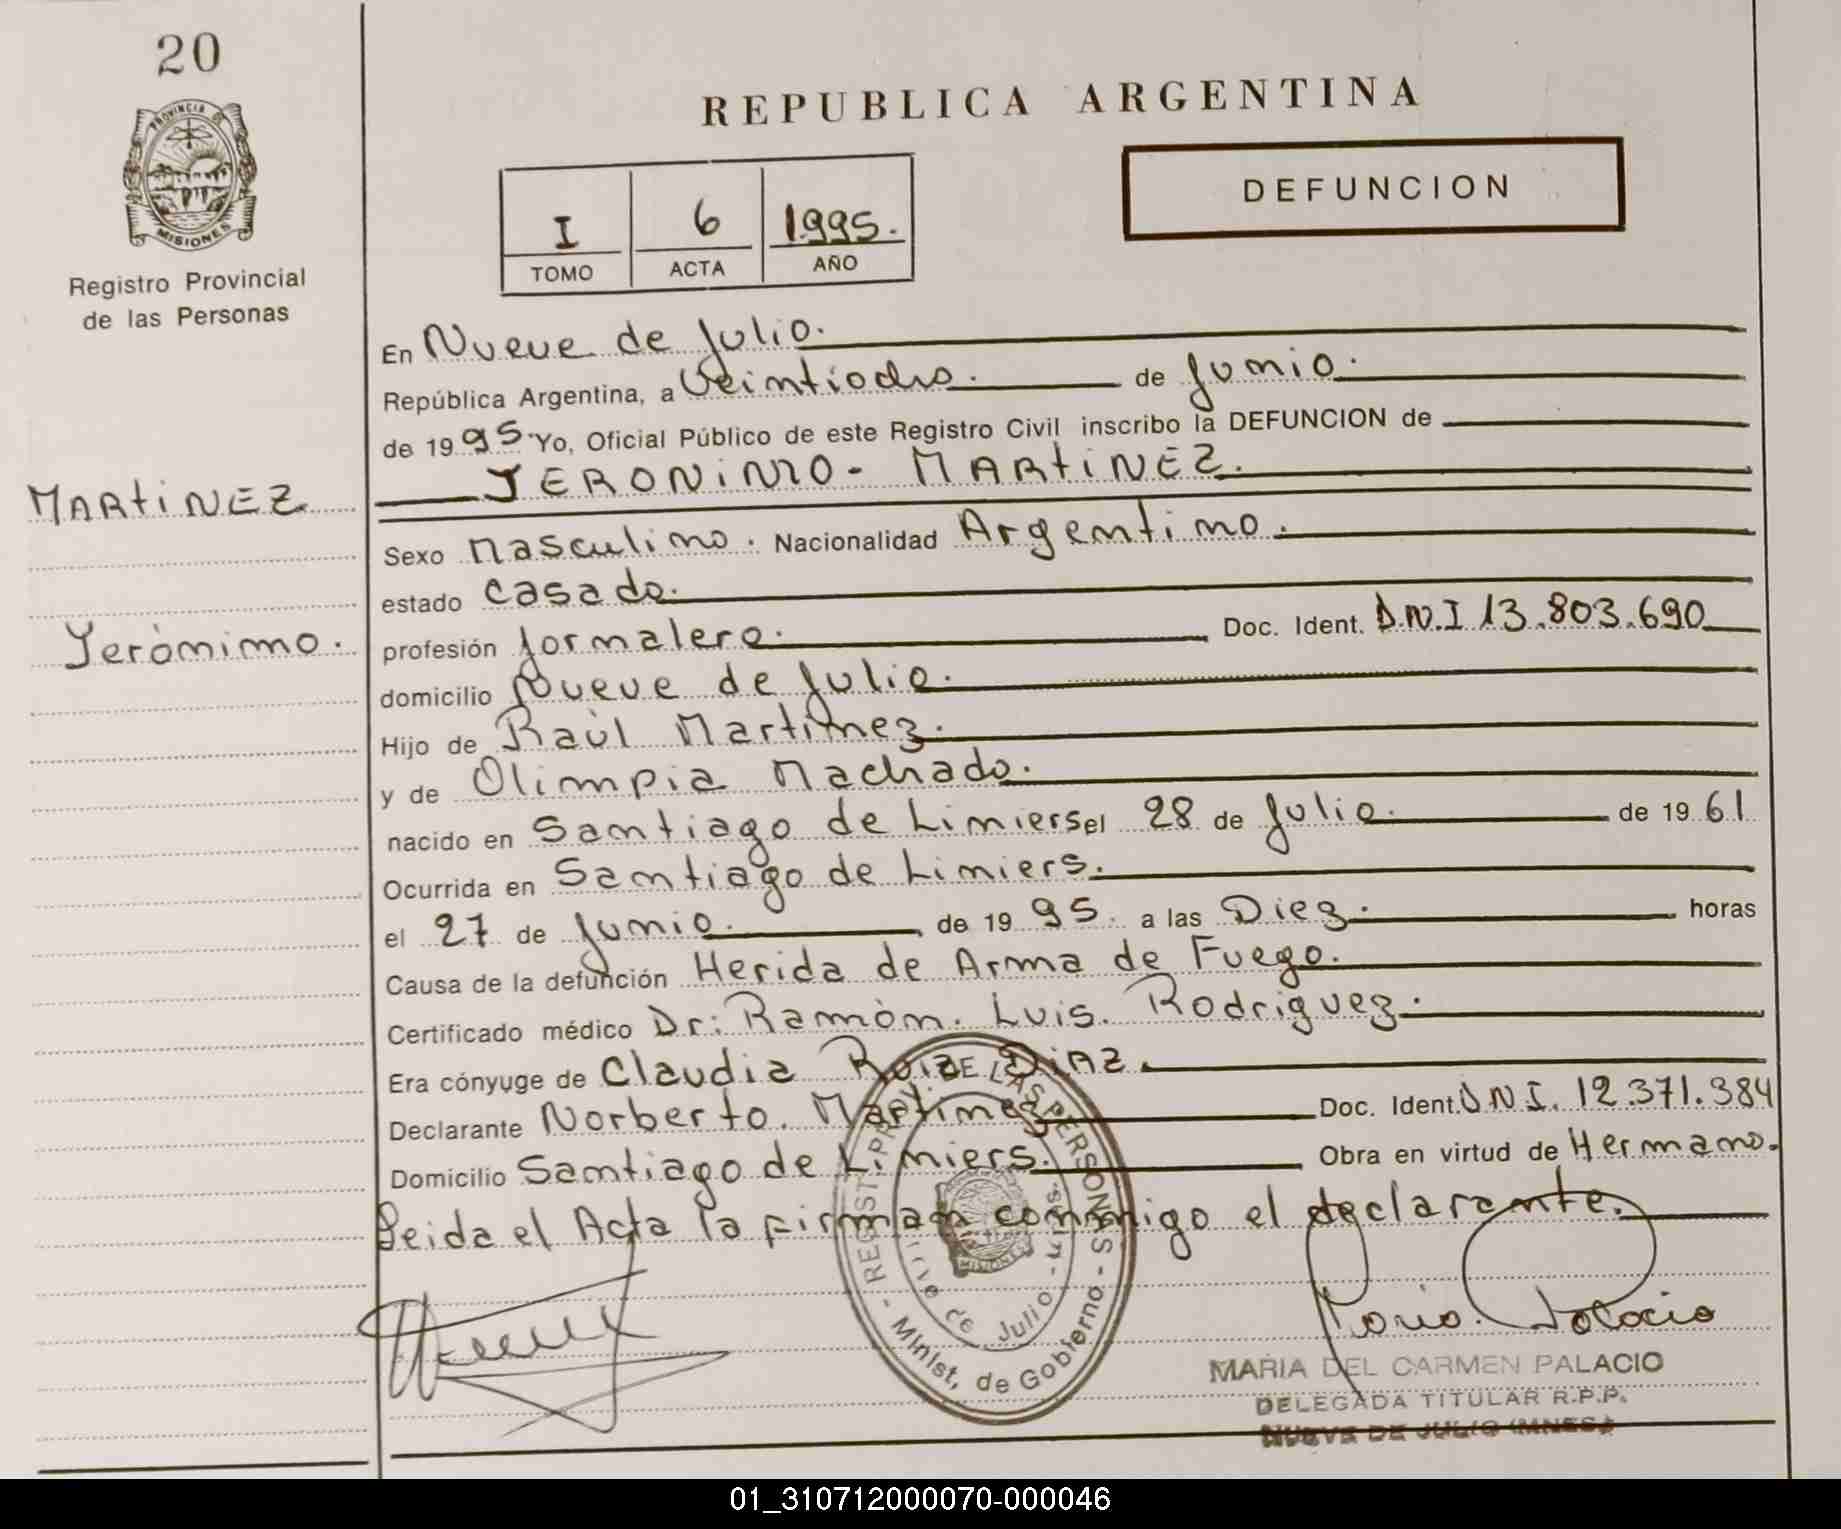 20
PROVINCIA DE
MISIONES
Registro Provincial
de las Personas
MARTINEZ
Jerónimo.
REPUBLICA ARGENTINA
I 6 1995.
TOMO ACTA AÑO
DEFUNCION
En Nueve de Julio.
República Argentina, a Veintiocho. de Junio.
de 1995 Yo, Oficial Público de este Registro Civil inscribo la DEFUNCION de
JERONIMO - MARTINEZ.
Sexo Masculino. Nacionalidad Argentino.
estado Casado.
profesión Jornalero. Doc. Ident. D.N.I 13.803.690
domicilio Nueve de Julio.
Hijo de Raúl Martinez.
y de Olimpia Machado.
nacido en Santiago de Liniers el 28 de Julio. de 1961
Ocurrida en Santiago de Liniers.
el 27 de Junio. de 1995. a las Diez. horas
Causa de la defunción Herida de Arma de Fuego.
Certificado médico Dr: Ramón. Luis. Rodriguez.
Era cónyuge de Claudia Ruiz DiAZ.
Declarante Norberto. Martinez Doc. Ident. DNI. 12.371.384
Domicilio Santiago de Liniers. Obra en virtud de Hermano.
Leida el Acta la firman conmigo el declarante.
- REGIST. PROV. DE LAS PERSONAS -
Minist, de Gobierno.
de Julio - Mnes.
MISIONES
Maria. Palacio
MARIA DEL CARMEN PALACIO
DELEGADA TITULAR R.P.P.
NUEVE DE JULIO (MNES.)
01_310712000070-000046